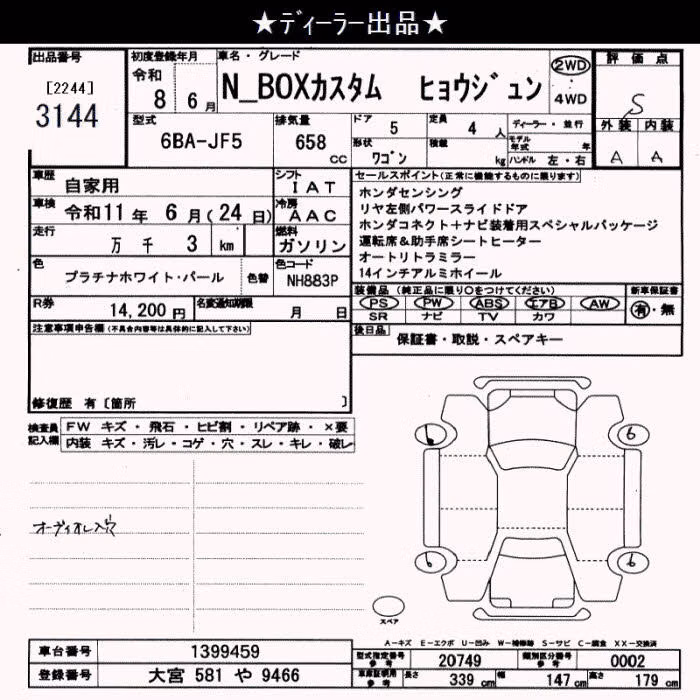 ★ディーラー出品★
出品番号
[2244]
3144
初度登録年月
令和
8 6月
車名・グレード
N_BOXカスタム ヒョウジュン
2WD
・
4WD
評価点
S
外装 内装
A A
型式
6BA-JF5
排気量
658
cc
ドア
5
定員
4 人
形状
ワゴン
積載
kg
ディーラー・並行
モデル年式 年
ハンドル 左・右
車歴
自家用
シフト
IAT
車検
令和11年 6月(24日)
冷房
AAC
走行
万 千 3 km
燃料
ガソリン
色
プラチナホワイト・パール
色替
色コード
NH883P
R券
14,200円
名変通知期限
月 日
セールスポイント(正常に機能するものに限ります)
ホンダセンシング
リヤ左側パワースライドドア
ホンダコネクト+ナビ装着用スペシャルパッケージ
運転席&助手席シートヒーター
オートリトラミラー
14インチアルミホイール
装備品(純正品に限り○をつけてください)
PS PW ABS エアB AW
SR ナビ TV カワ
新車保証書
有・無
後日品
保証書・取説・スペアキー
注意事項申告欄(不具合内容等は具体的に記入して下さい)
修復歴 有〔箇所 〕
検査員記入欄
FW キズ・飛石・ヒビ割・リペア跡・×要
内装 キズ・汚レ・コゲ・穴・スレ・キレ・破レ
オーディオレス穴
6
6
6
6
スペア
A-キズ E-エクボ U-凹み W-補修跡 S-サビ C-腐食 XX-交換済
車台番号
1399459
登録番号
大宮 581 や 9466
型式指定番号
参考
20749
類別区分番号
参考
0002
車庫証明用
参考
長さ
339 cm
幅
147 cm
高さ
179 cm